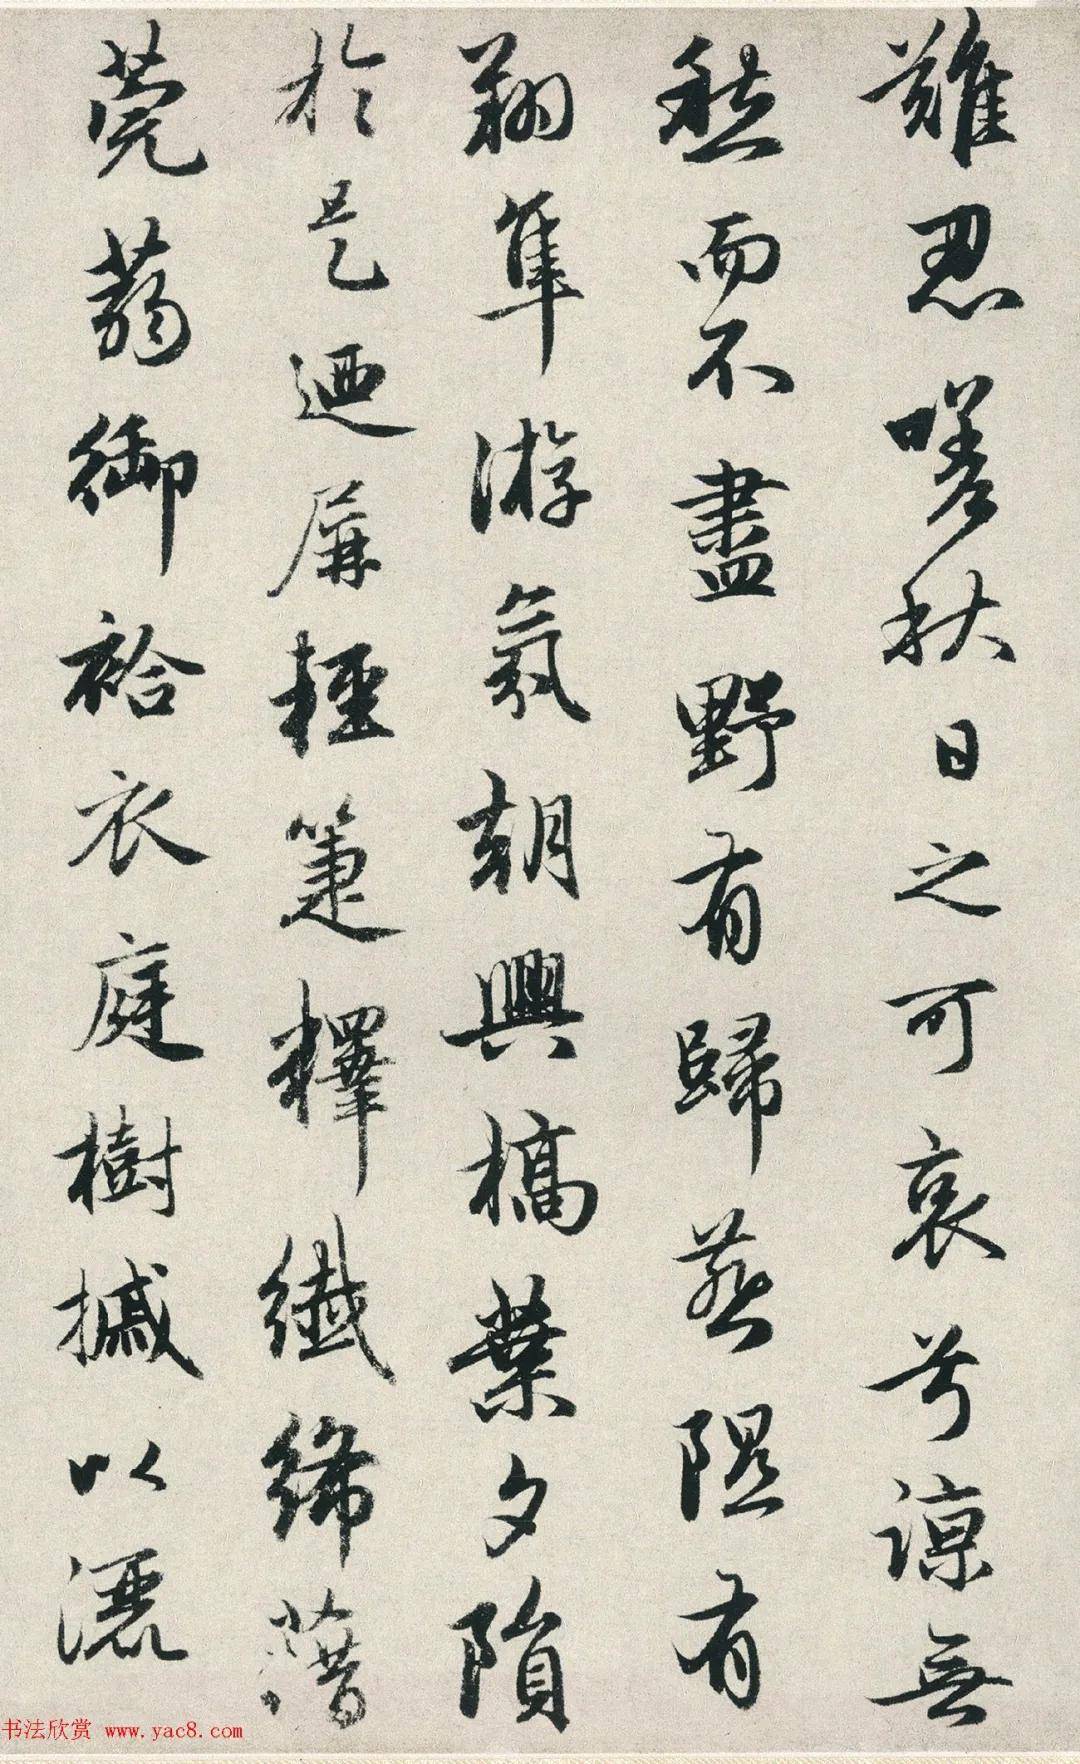 難忍嗟秋日之可哀兮諒無
愁而不盡野有歸燕隰有
翔隼游氛朝興槁葉夕隕
於是迺屏輕箑釋纖絺藉
莞蒻御袷衣庭樹摵以灑
书法欣赏 www.yac8.com